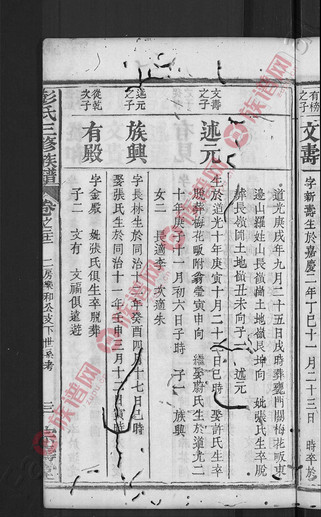 有榜
之子
文壽
字新壽生於嘉慶二年丁巳十一月二十三日 時卒於
道光庚戌年九月二十五日戌時葬甕門關梅花畈東
邊山羅娃山長嶺崗土地嶺艮坤向 妣張氏生卒脫
葬長嶺圍土地嶺丑未向 子 述元
文壽
之子
述元
生於道光十年庚寅十月二十 日巳時 娶許氏生卒
十年庚 十一月初六日子時 子一 族興
女二 長適李 次適朱
述元
之子
族興
字長林生於同治十二年癸酉四月十七日巳時
娶張氏生於同治十一年壬申三月十 日寅時
從乾
次子
有殿
字金殿 妣張氏俱生卒脫葬
子二 文有 文福俱遠遊
彭氏三修族譜
卷之
二房榮和公支下世系考
族谱网